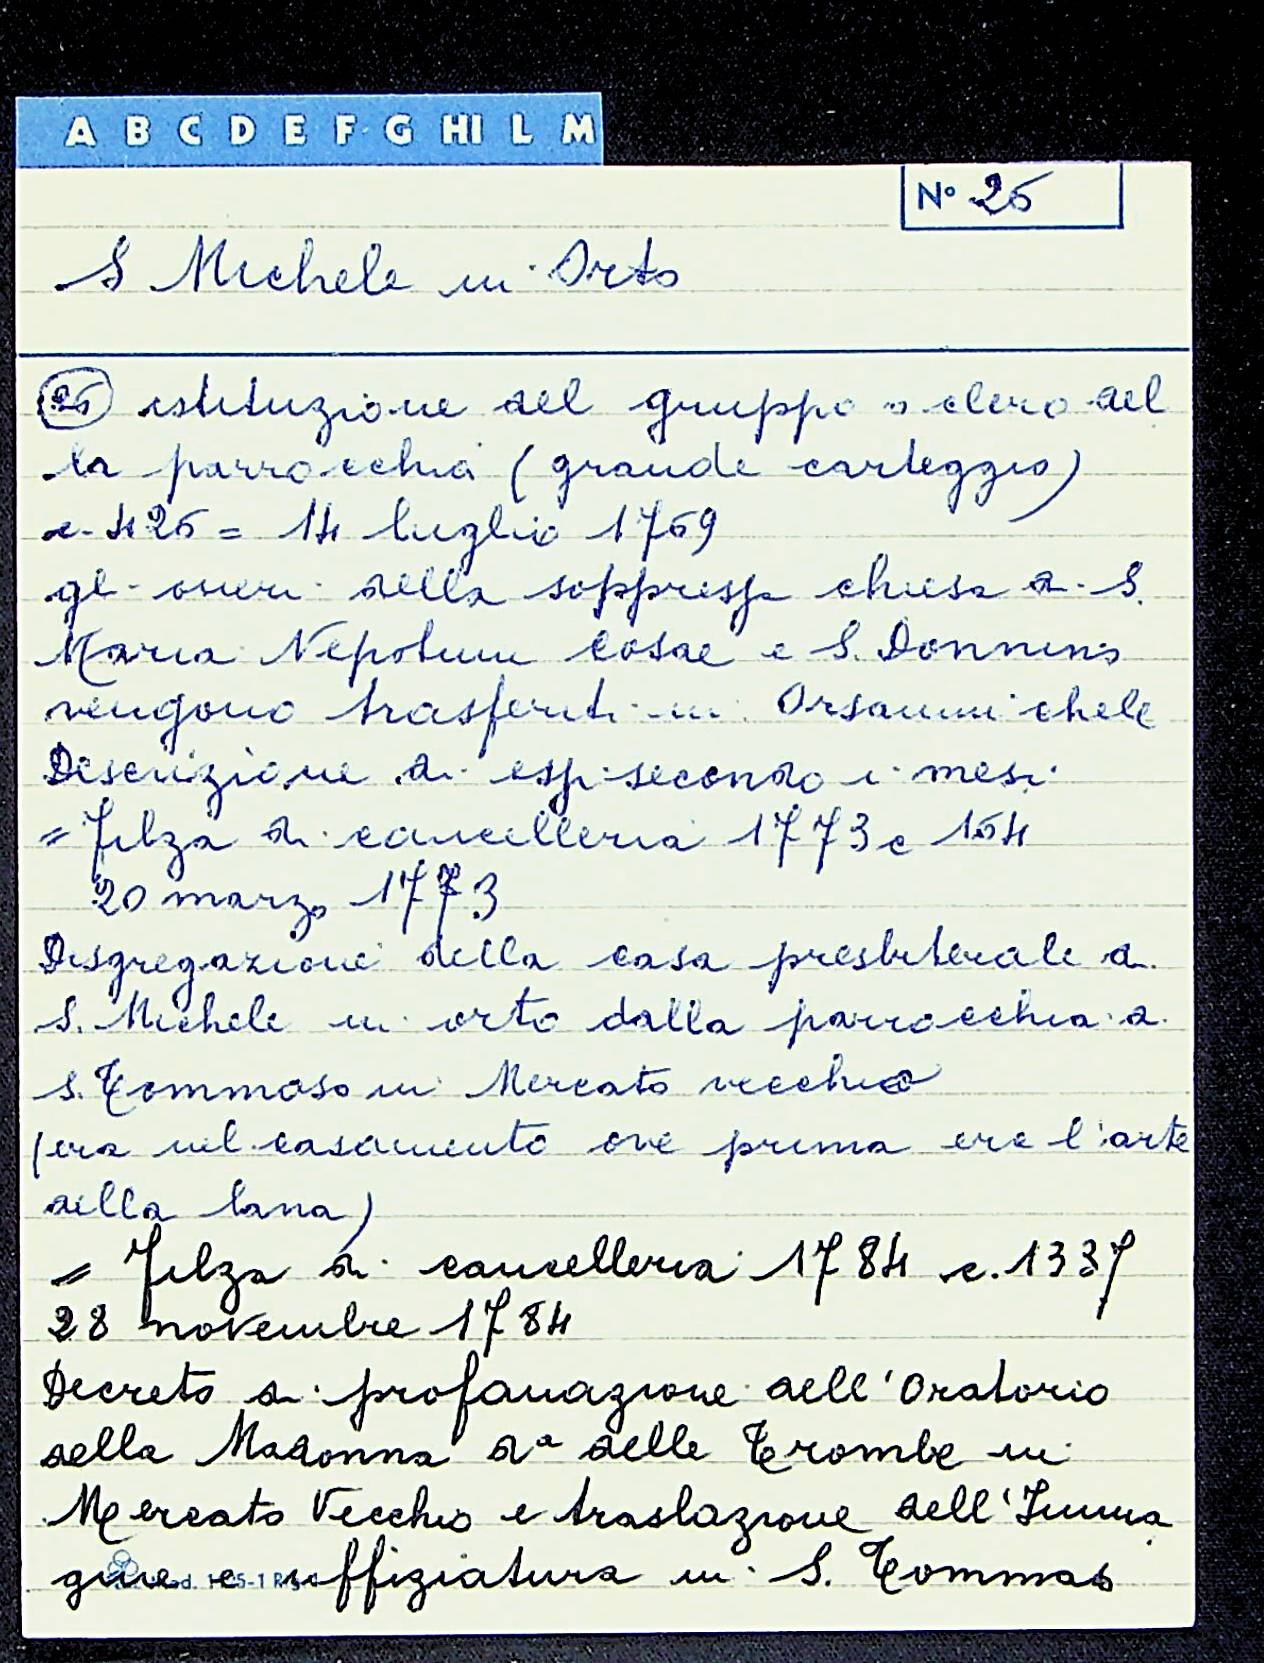 A B C D E F G HI L M
N° 26
S Michele in Orto
26 istituzione del gruppo o clero del
la parrocchia (grande carteggio)
c. 426 = 14 luglio 1769
gl oneri della soppressa chiesa di S.
Maria Nepotum Cosae e S. Donnino
vengono trasferiti in Orsanmichele
Descrizione di essi secondo i mesi
= Filza di cancelleria 1773 c 164
20 marzo 1773
Disgregazione della casa presbiterale di
S. Michele in orto dalla parrocchia di
S. Tommaso in Mercato vecchio
(era nel casamento ove prima era l'arte
della lana)
= Filza di cancelleria 1784 c. 1337
28 novembre 1784
Decreto di profanazione dell'Oratorio
della Madonna da delle Trombe in
Mercato Vecchio e traslazione dell'Imma
gine e uffiziatura in S. Tommaso